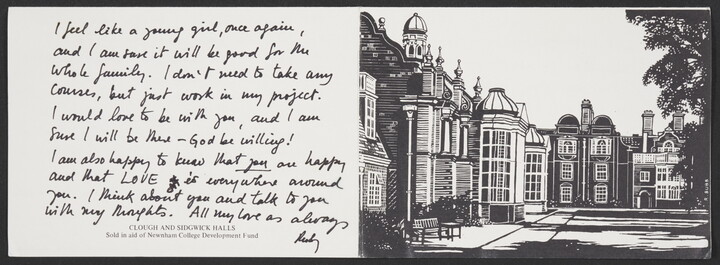 I feel like a young girl, once again,
and I am sure it will be good for the
whole family. I don't need to take any
courses, but just work in my project.
I would love to be with you, and I am
sure I will be there – God be willing!
I am also happy to know that you are happy
and that LOVE is everywhere around
you. I think about you and talk to you
with my thoughts. All my love as always
Ruby
CLOUGH AND SIDGWICK HALLS
Sold in aid of Newnham College Development Fund